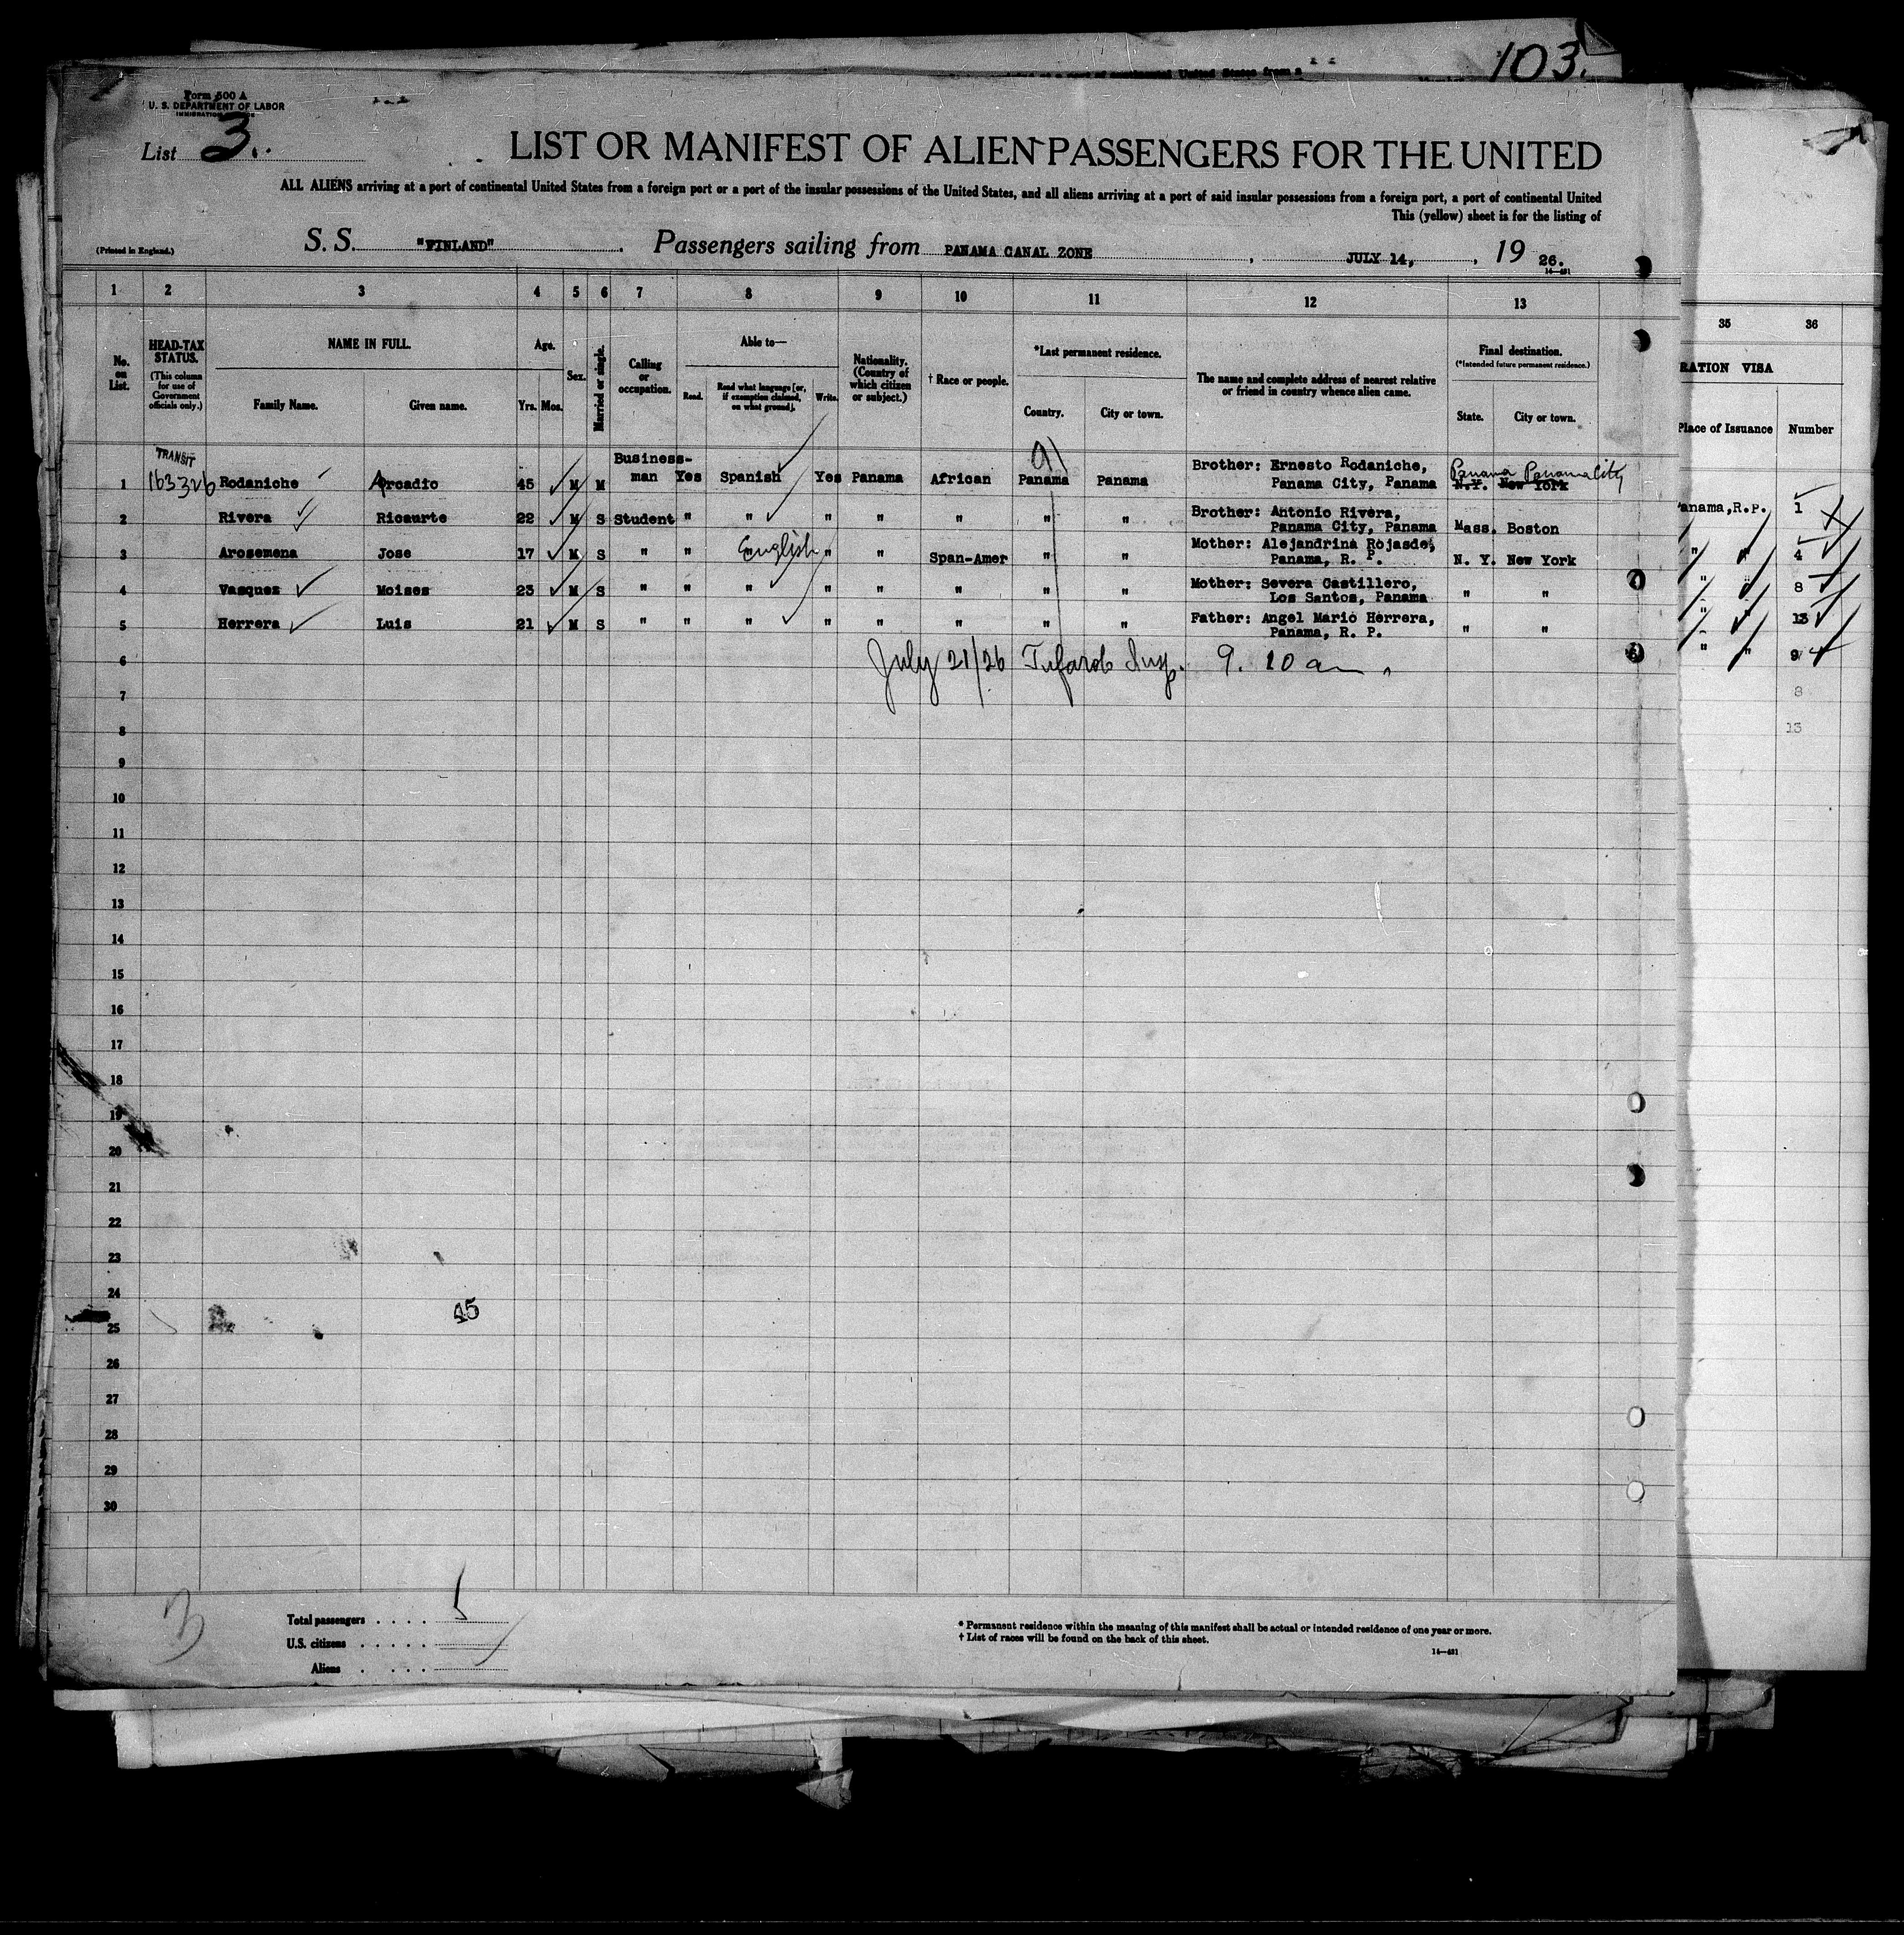 103.
Form 500 A
U. S. DEPARTMENT OF LABOR
IMMIGRATION SERVICE
List 3.
LIST OR MANIFEST OF ALIEN PASSENGERS FOR THE UNITED
ALL ALIENS arriving at a port of continental United States from a foreign port or a port of the insular possessions of the United States, and all aliens arriving at a port of said insular possessions from a foreign port, a port of continental United
This (yellow) sheet is for the listing of
(Printed in England.) S. S. "FINLAND" Passengers sailing from PANAMA CANAL ZONE, JULY 14, 19 26.
14—421
1 2 3 4 5 6 7 8 9 10 11 12 13 35 36
No. on List. HEAD-TAX STATUS. (This column for use of Government officials only.) NAME IN FULL. Family Name. Given name. Age. Yrs. Mos. Sex. Married or single. Calling or occupation. Able to— Read. Read what language [or, if exemption claimed, on what ground]. Write. Nationality. (Country of which citizen or subject.) † Race or people. *Last permanent residence. Country. City or town. The name and complete address of nearest relative or friend in country whence alien came. Final destination. (*Intended future permanent residence.) State. City or town.
RATION VISA
Place of Issuance Number
TRANSIT
1 163326 Rodaniche Arcadio 45 M M Business-man Yes Spanish Yes Panama African Panama Panama Brother: Ernesto Rodaniche, Panama City, Panama Panama Panama City N.Y. New York
Panama, R.P. 1
2 Rivera Ricaurte 22 M S Student " " " " " " " Brother: Antonio Rivera, Panama City, Panama Mass. Boston
" " 4
3 Arosemena Jose 17 M S " " " English " " Span-Amer " " Mother: Alejandrina Rojasde, Panama, R. P. N. Y. New York
" " 8
4 Vasquez Moises 23 M S " " " " " " " " Mother: Severa Castillero, Los Santos, Panama " "
" " 13
5 Herrera Luis 21 M S " " " " " " " " Father: Angel Mario Herrera, Panama, R. P. " "
" " 9
6 July 21/26 Insp. 9. 10 am
7
8
13
8
9
10
11
12
13
14
15
16
17
18
19
20
21
22
23
24
45
25
26
27
28
29
30
3
Total passengers . . . . 5
U.S. citizens . . . . .
Aliens . . . .
* Permanent residence within the meaning of this manifest shall be actual or intended residence of one year or more.
† List of races will be found on the back of this sheet.
14—421